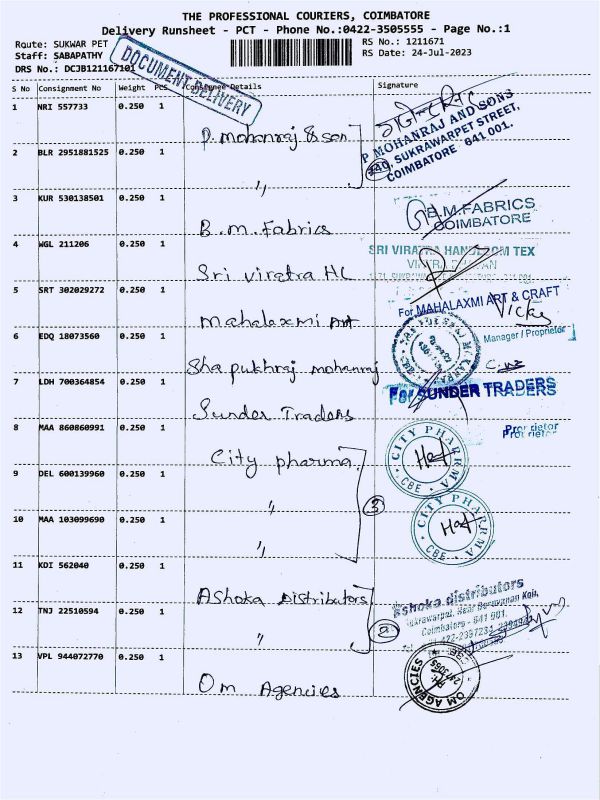 THE PROFESSIONAL COURIERS, COIMBATORE
Delivery Runsheet - PCT - Phone No.:0422-3505555 - Page No.:1
Route: SUKWAR PET
RS No.: 1211671
Staff: SABAPATHY
RS Date: 24-Jul-2023
DRS No.: DCJB121167101
DOCUMENT DELIVERY
S No Consignment No Weight PCS Consignee Details Signature
1 NRI 557733 0.250 1
P. Mohanraj & son
P MOHANRAJ AND SONS
240, SUKRAWARPET STREET,
COIMBATORE 641 001.
2 BLR 2951881525 0.250 1
〃
3 KUR 530138501 0.250 1
B.M. Fabrics
B.M.FABRICS
COIMBATORE
4 WGL 211206 0.250 1
Sri viratra HC
SRI VIRATRA HANDLOOM TEX
5 SRT 302029272 0.250 1
Mahalaxmi Art
For MAHALAXMI ART & CRAFT
Vicky
Manager / Proprietor
6 EDQ 18073560 0.250 1
Sha pukhraj mohanraj
7 LDH 700364854 0.250 1
Sunder Traders
For SUNDER TRADERS
Proprietor
8 MAA 860860991 0.250 1
City pharma
CITY PHARMA
CBE
9 DEL 600139960 0.250 1
〃
3
CITY PHARMA
CBE
10 MAA 103099690 0.250 1
〃
11 KDI 562040 0.250 1
Ashoka Distributors
Ashoka distributors
Coimbatore - 641 001.
12 TNJ 22510594 0.250 1
〃
2
13 VPL 944072770 0.250 1
Om Agencies
OM AGENCIES